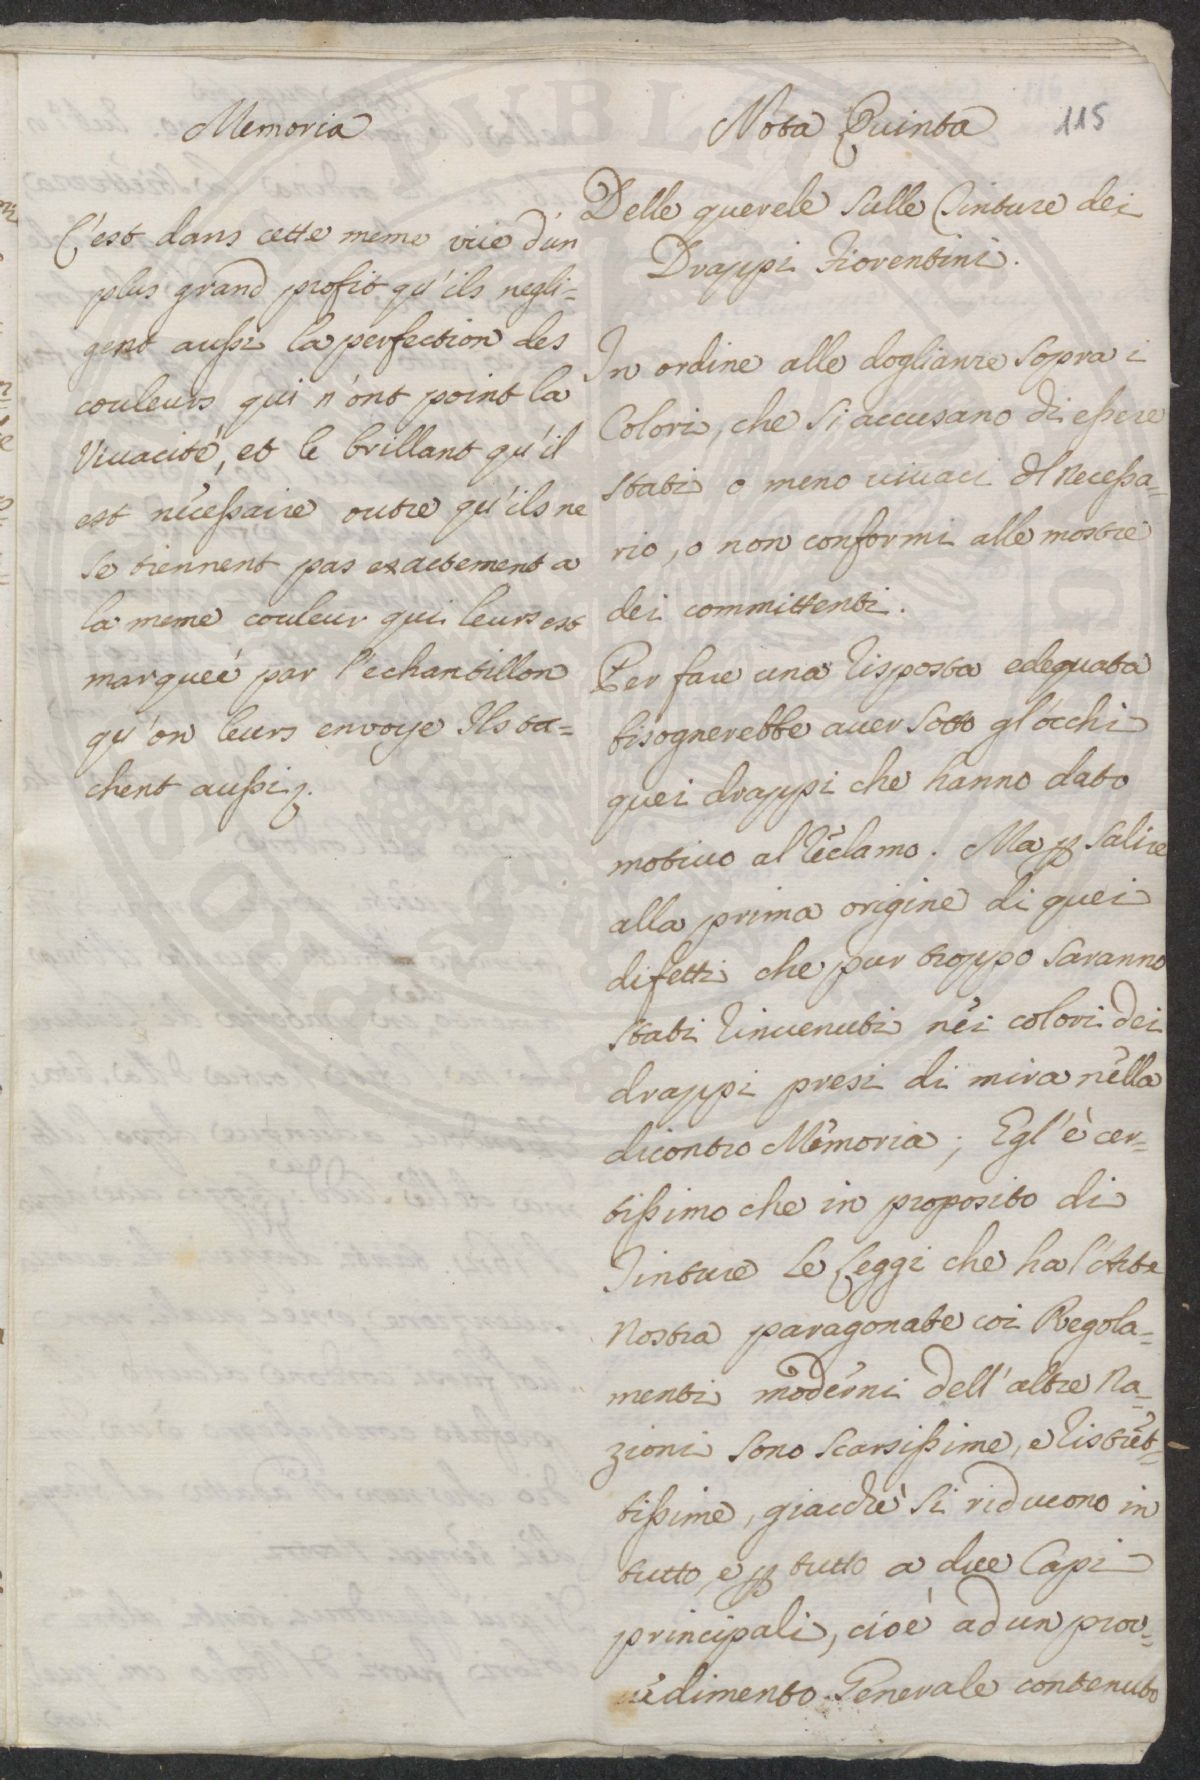 Memoria
C'est dans cette meme vüe d'un
plus grand profit qu'ils negli=
gent aussi la perfection des
couleurs qui n'ont point la
Vivacité, et le brillant qu'il
est nécessaire outre qu'ils ne
se tiennent pas exactement a
la meme couleur qui leurs est
marqueé par l'echantillon
qu'on leurs envoye Ils ta=
chent aussi
115
Nota Quinta
Delle querele sulle Tinture dei
Drappi Fiorentini.
In ordine alle doglianze sopra i
Colori, che si accusano di essere
stati o meno vivaci del necessa=
rio, o non conformi alle mostre
dei committenti.
Per fare una risposta adequata
bisognerebbe aver sotto gl'occhi
quei drappi che hanno dato
motivo al reclamo. Ma p salire
alla prima origine di quei
difetti che pur troppo saranno
stati rinvenuti nei colori dei
drappi presi di mira nella
dicontro Memoria; Egl'è cer=
tissimo che in proposito di
Tinture le Leggi che ha l'Arte
Nostra paragonate coi Regola=
menti moderni dell'altre Na=
zioni sono scarsissime, e ristret=
tissime, giacchè si riducono in
tutto, e p tutto a due Capi
principali, cioè ad un prov=
vedimento Generale contenuto